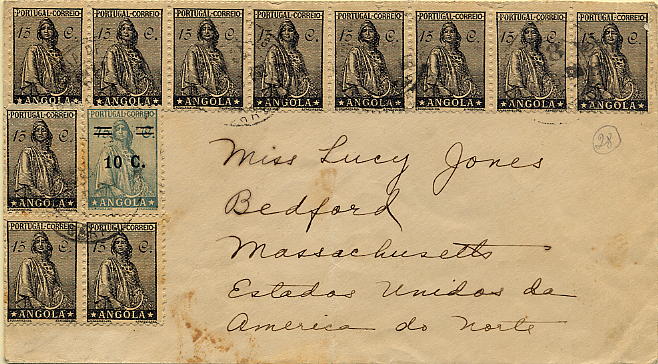 PORTUGAL-CORREIO PORTUGAL-CORREIO PORTUGAL-CORREIO PORTUGAL-CORREIO PORTUGAL-CORREIO PORTUGAL-CORREIO PORTUGAL-CORREIO PORTUGAL-CORREIO
15 C. 15 C. 15 C. 15 C. 15 C. 15 C. 15 C. 15 C.
ANGOLA ANGOLA ANGOLA ANGOLA ANGOLA ANGOLA ANGOLA ANGOLA
PORTUGAL-CORREIO PORTUGAL-CORREIO
15 C. 75 C.
10 C.
ANGOLA ANGOLA
PORTUGAL-CORREIO PORTUGAL-CORREIO
15 C. 15 C.
ANGOLA ANGOLA
28
Miss Lucy Jones
Bedford
Massachusetts
Estados Unidos da
America do Norte